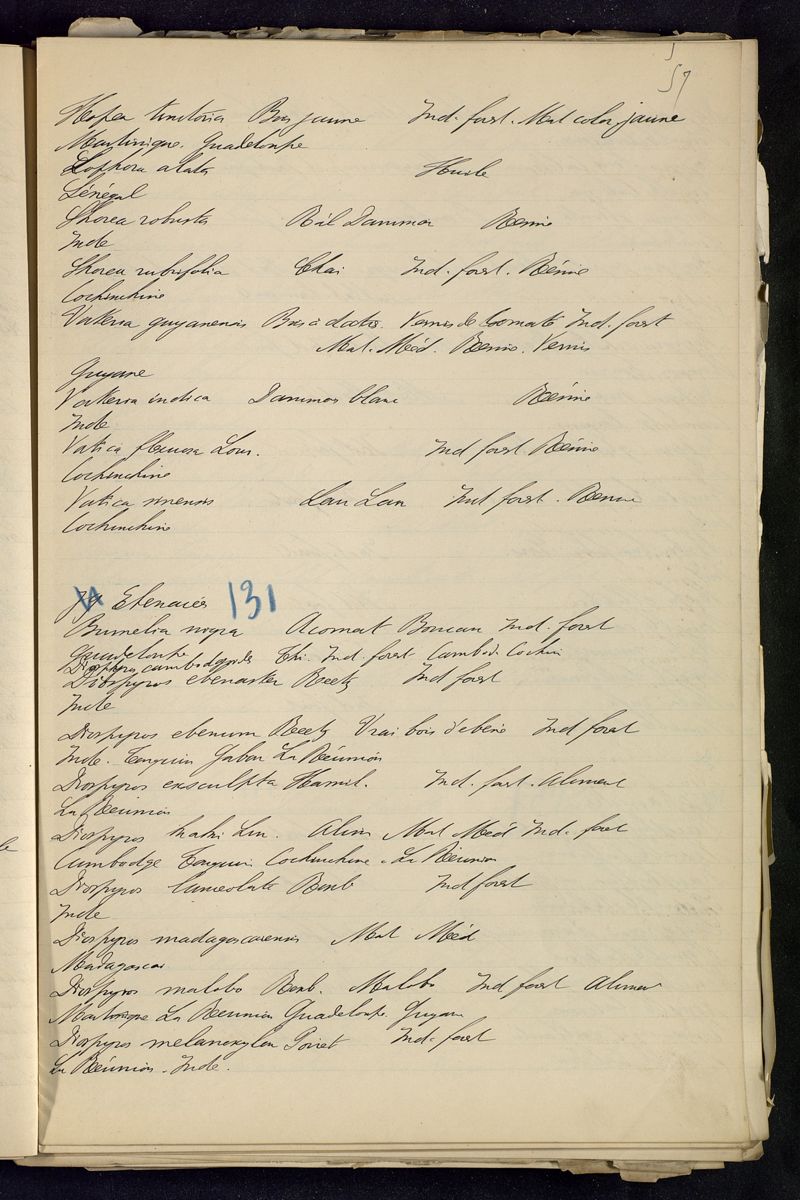 57
Hopea tinctoria Bois jaune Ind. forest. Mat color. jaune
Martinique. Guadeloupe
Lophora alata Huile
Sénégal
Shorea robusta Râl Dammar Résine
Inde
Shorea rubrifolia Chai Ind. forest. Résine
Cochinchine
Vateria guyanensis Bois à dartres Vernis de Ind. forest
Mat. Méd. Résine. Vernis
Guyane
Vateria indica Dammar blanc Résine
Inde
Vatica flexuosa Lour. Ind forest. Résine
Cochinchine
Vatica sinensis Lau Lau Ind forest. Résine
Cochinchine
Ebenacées 131
Bumelia nigra Acomat Boucan Ind. forest
Guadeloupe
Diospyros cambodgensis Thi. Ind. forest Cambod. Cochin
Diospyros ebenaster Reetz Ind forest
Inde
Diospyros ebenum Reetz Vrai bois d'ebène Ind forest
Inde. Tonquin Gabon La Réunion
Diospyros exsculpta Hamil. Ind. forst. Aliment
La Réunion
Diospyros kaki Lin. Alim Mat Méd Ind. forest
Cambodge Tonquin Cochinchine. La Réunion
Diospyros lanceolata Roxb Ind forest
Inde
Diospyros madagascarensis Mat Méd
Madagascar
Diospyros malobo Roxb. Malobo Ind forest Aliment
Martinique La Réunion Guadeloupe. Guyane
Diospyros melanoxylon Poiret Ind. forest
La Réunion. Inde.